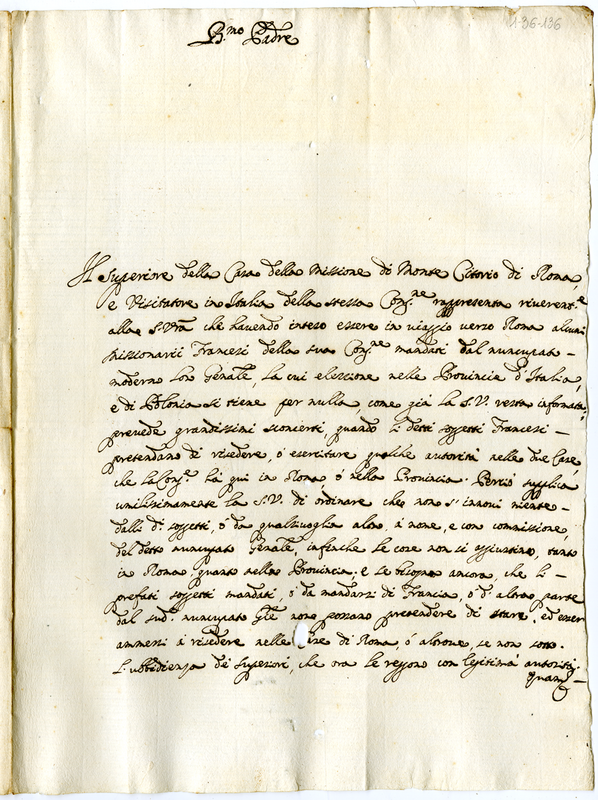 1-36-136
B.mo Padre
Il Superiore della Casa della Missione di Monte Citorio di Roma,
e Visitatore in Italia della stessa Cong.ne rappresenta riverent.e
alla S. Vra che havendo inteso essere in viaggio verso Roma alcuni
Missionarii Francesi della sua Cong.ne mandati dal nuncupato –
moderno loro Genāle, la cui elezione nelle Provincie d'Italia,
e di Polonia si tiene per nulla, come già la S. V. resta informata,
prevede grandissimi sconcerti, quando li detti soggetti Francesi –
pretendano di risedere, ò esercitare qualche autorità nelle due Case
che la Cong.e hà quì in Roma, ò nella Provincia. Perciò supplica
umilissimamente la S. V. di ordinare che non s'innovi niente –
dalli d.i soggetti, ò da qualsivoglia altro, à nome, e con commissione,
del detto nuncupato Genāle, infinche le cose non si aggiustino, tanto
in Roma quanto nella Provincia; e se bisogna ancora, che li –
prefati soggetti mandati, ò da mandarsi di Francia, ò d'altra parte
dal sud.o nuncupato Gāle non possano pretendere di stare, ed esser
ammessi à risedere nelle Case di Roma, ò altrove, se non sotto
l'ubbidienza de' Superiori, che ora le reggono con legitima autorità,
quan –